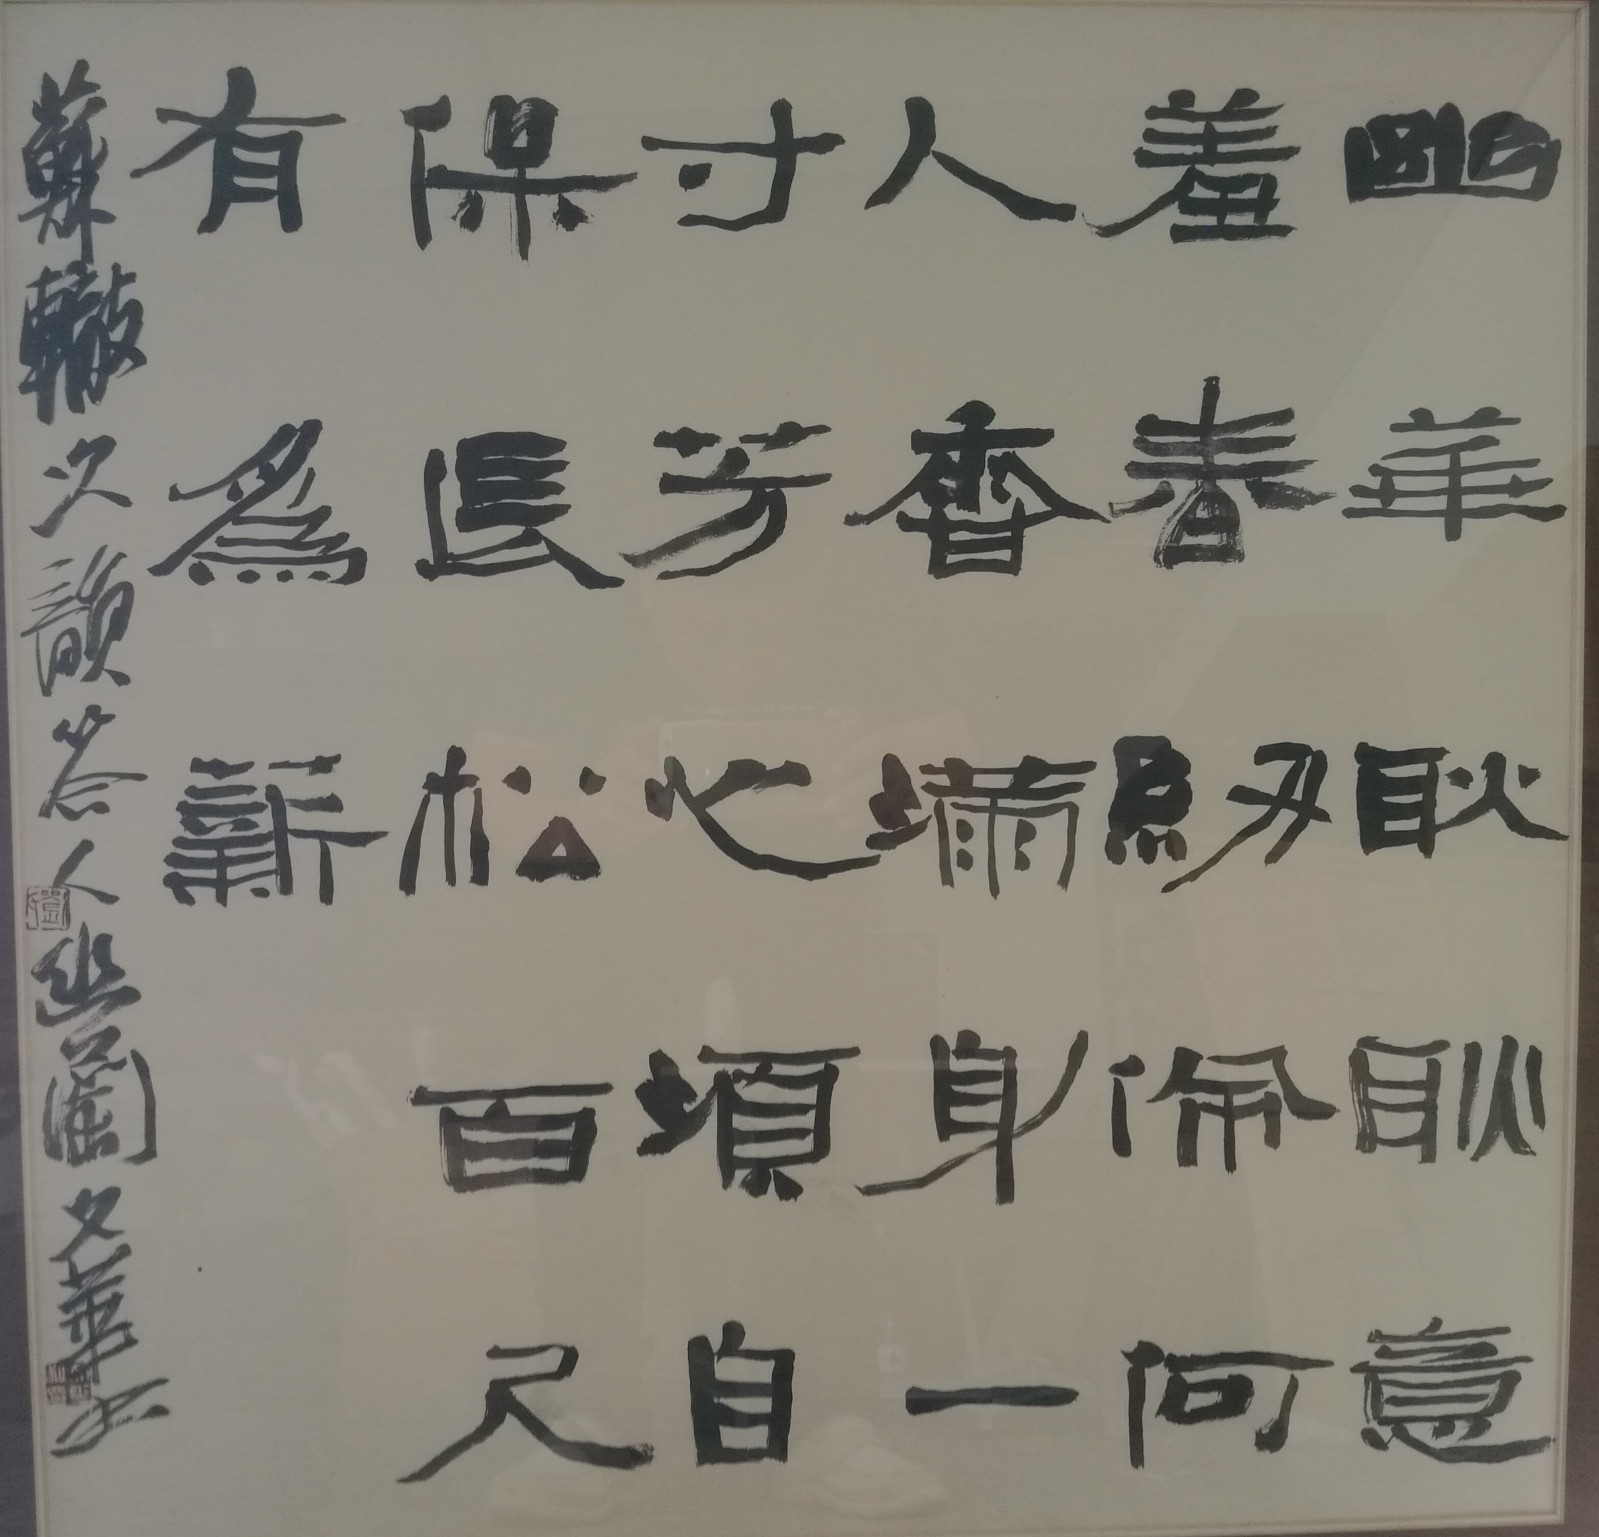 幽華耿耿意
羞春紉佩何
人香滿身一
寸芳心湏自
保長松百尺
有爲薪
蘇轍次韻答人幽蘭文華书